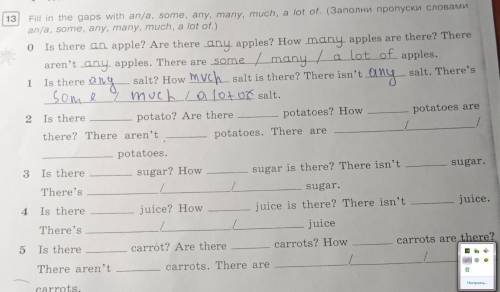 13 Fill in the gaps with an/a, some, any, many, much, a lot of. (Заполни пропуски словами
an/a, some, any, many, much, a lot of.)
0 Is there an apple? Are there any apples? How many apples are there? There
aren't any apples. There are some / many / a lot of apples.
1 Is there any salt? How much salt is there? There isn't any salt. There's
some / much / a lot of salt.
2 Is there ______ potato? Are there ______ potatoes? How ______ potatoes are
there? There aren't ______ potatoes. There are ______ / ______ /
______ potatoes.
3 Is there ______ sugar? How ______ sugar is there? There isn't ______ sugar.
There's ______ / ______ / ______ sugar.
4 Is there ______ juice? How ______ juice is there? There isn't ______ juice.
There's ______ / ______ / ______ juice
5 Is there ______ carrot? Are there ______ carrots? How ______ carrots are there?
There aren't ______ carrots. There are ______ / ______ /
carrots.